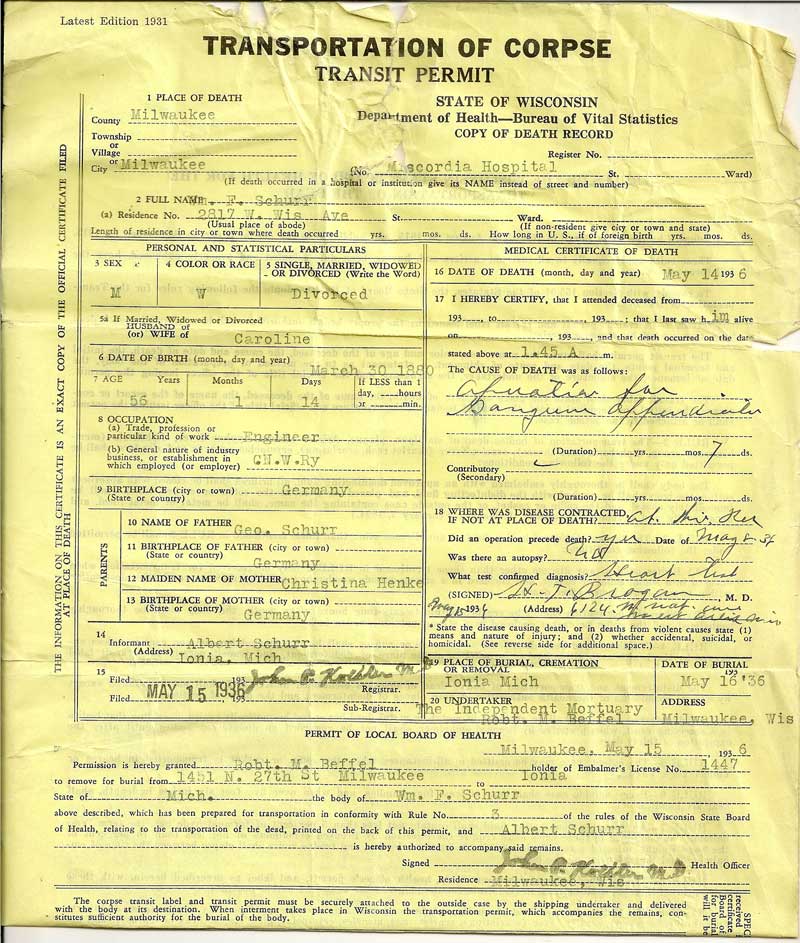 Latest Edition 1931
TRANSPORTATION OF CORPSE
TRANSIT PERMIT
1 PLACE OF DEATH
County Milwaukee
Township
or
Village
or
City Milwaukee
STATE OF WISCONSIN
Department of Health—Bureau of Vital Statistics
COPY OF DEATH RECORD
Register No.
(No. Miscordia Hospital St. Ward)
(If death occurred in a hospital or institution give its NAME instead of street and number)
2 FULL NAME Wm. F. Schurr
(a) Residence No. 2817 W. Wis Ave St. Ward.
(Usual place of abode) (If non-resident give city or town and state)
Length of residence in city or town where death occurred yrs. mos. ds. How long in U. S., if of foreign birth yrs. mos. ds.
THE INFORMATION ON THIS CERTIFICATE IS AN EXACT COPY OF THE OFFICIAL CERTIFICATE FILED
AT PLACE OF DEATH
PERSONAL AND STATISTICAL PARTICULARS
3 SEX
M
4 COLOR OR RACE
W
5 SINGLE, MARRIED, WIDOWED
OR DIVORCED (Write the Word)
Divorced
5a If Married, Widowed or Divorced
HUSBAND of
(or) WIFE of Caroline
6 DATE OF BIRTH (month, day and year)
March 30 1880
7 AGE Years Months Days If LESS than 1
56 1 14 day, hours
or min.
8 OCCUPATION
(a) Trade, profession or
particular kind of work Engineer
(b) General nature of industry
business, or establishment in
which employed (or employer) C.N.W.Ry
9 BIRTHPLACE (city or town) Germany
(State or country)
PARENTS
10 NAME OF FATHER
Geo. Schurr
11 BIRTHPLACE OF FATHER (city or town)
(State or country) Germany
12 MAIDEN NAME OF MOTHER Christina Henke
13 BIRTHPLACE OF MOTHER (city or town)
(State or country) Germany
14
Informant Albert Schurr
(Address) Ionia, Mich
15
Filed 193 John P. Koehler M.D
Registrar.
Filed MAY 15 1936, 193
Sub-Registrar.
MEDICAL CERTIFICATE OF DEATH
16 DATE OF DEATH (month, day and year) May 14 1936
17 I HEREBY CERTIFY, that I attended deceased from
193 , to , 193 ; that I last saw him alive
on , 193 , and that death occurred on the date
stated above at 1.45 A m.
The CAUSE OF DEATH was as follows:
for
appendicitis
(Duration) yrs. mos. 7 ds.
Contributory
(Secondary)
(Duration) yrs. mos. ds.
18 WHERE WAS DISEASE CONTRACTED,
IF NOT AT PLACE OF DEATH? at
Did an operation precede death? yes Date of May 8-36
Was there an autopsy? no
What test confirmed diagnosis? Heart test
(SIGNED) H. T. Brogan, M. D.
May 15 1936 (Address) 6124
* State the disease causing death, or in deaths from violent causes state (1)
means and nature of injury; and (2) whether accidental, suicidal, or
homicidal. (See reverse side for additional space.)
19 PLACE OF BURIAL, CREMATION
OR REMOVAL
Ionia Mich
DATE OF BURIAL
193
May 16 '36
20 UNDERTAKER
The Independent Mortuary
Robt. M. Beffel
ADDRESS
Milwaukee, Wis
PERMIT OF LOCAL BOARD OF HEALTH
Milwaukee, May 15 1936
Permission is hereby granted Robt. M. Beffel holder of Embalmer's License No. 1447
to remove for burial from 1451 N. 27th St Milwaukee to Ionia
State of Mich. the body of Wm. F. Schurr
above described, which has been prepared for transportation in conformity with Rule No. 3 of the rules of the Wisconsin State Board
of Health, relating to the transportation of the dead, printed on the back of this permit, and Albert Schurr
is hereby authorized to accompany said remains.
Signed John P. Koehler M.D Health Officer
Residence Milwaukee, Wis
The corpse transit label and transit permit must be securely attached to the outside case by the shipping undertaker and delivered
with the body at its destination. When interment takes place in Wisconsin the transportation permit, which accompanies the remains, con-
stitutes sufficient authority for the burial of the body.
SPEC
received
certificate
Board of
for burial
will it be